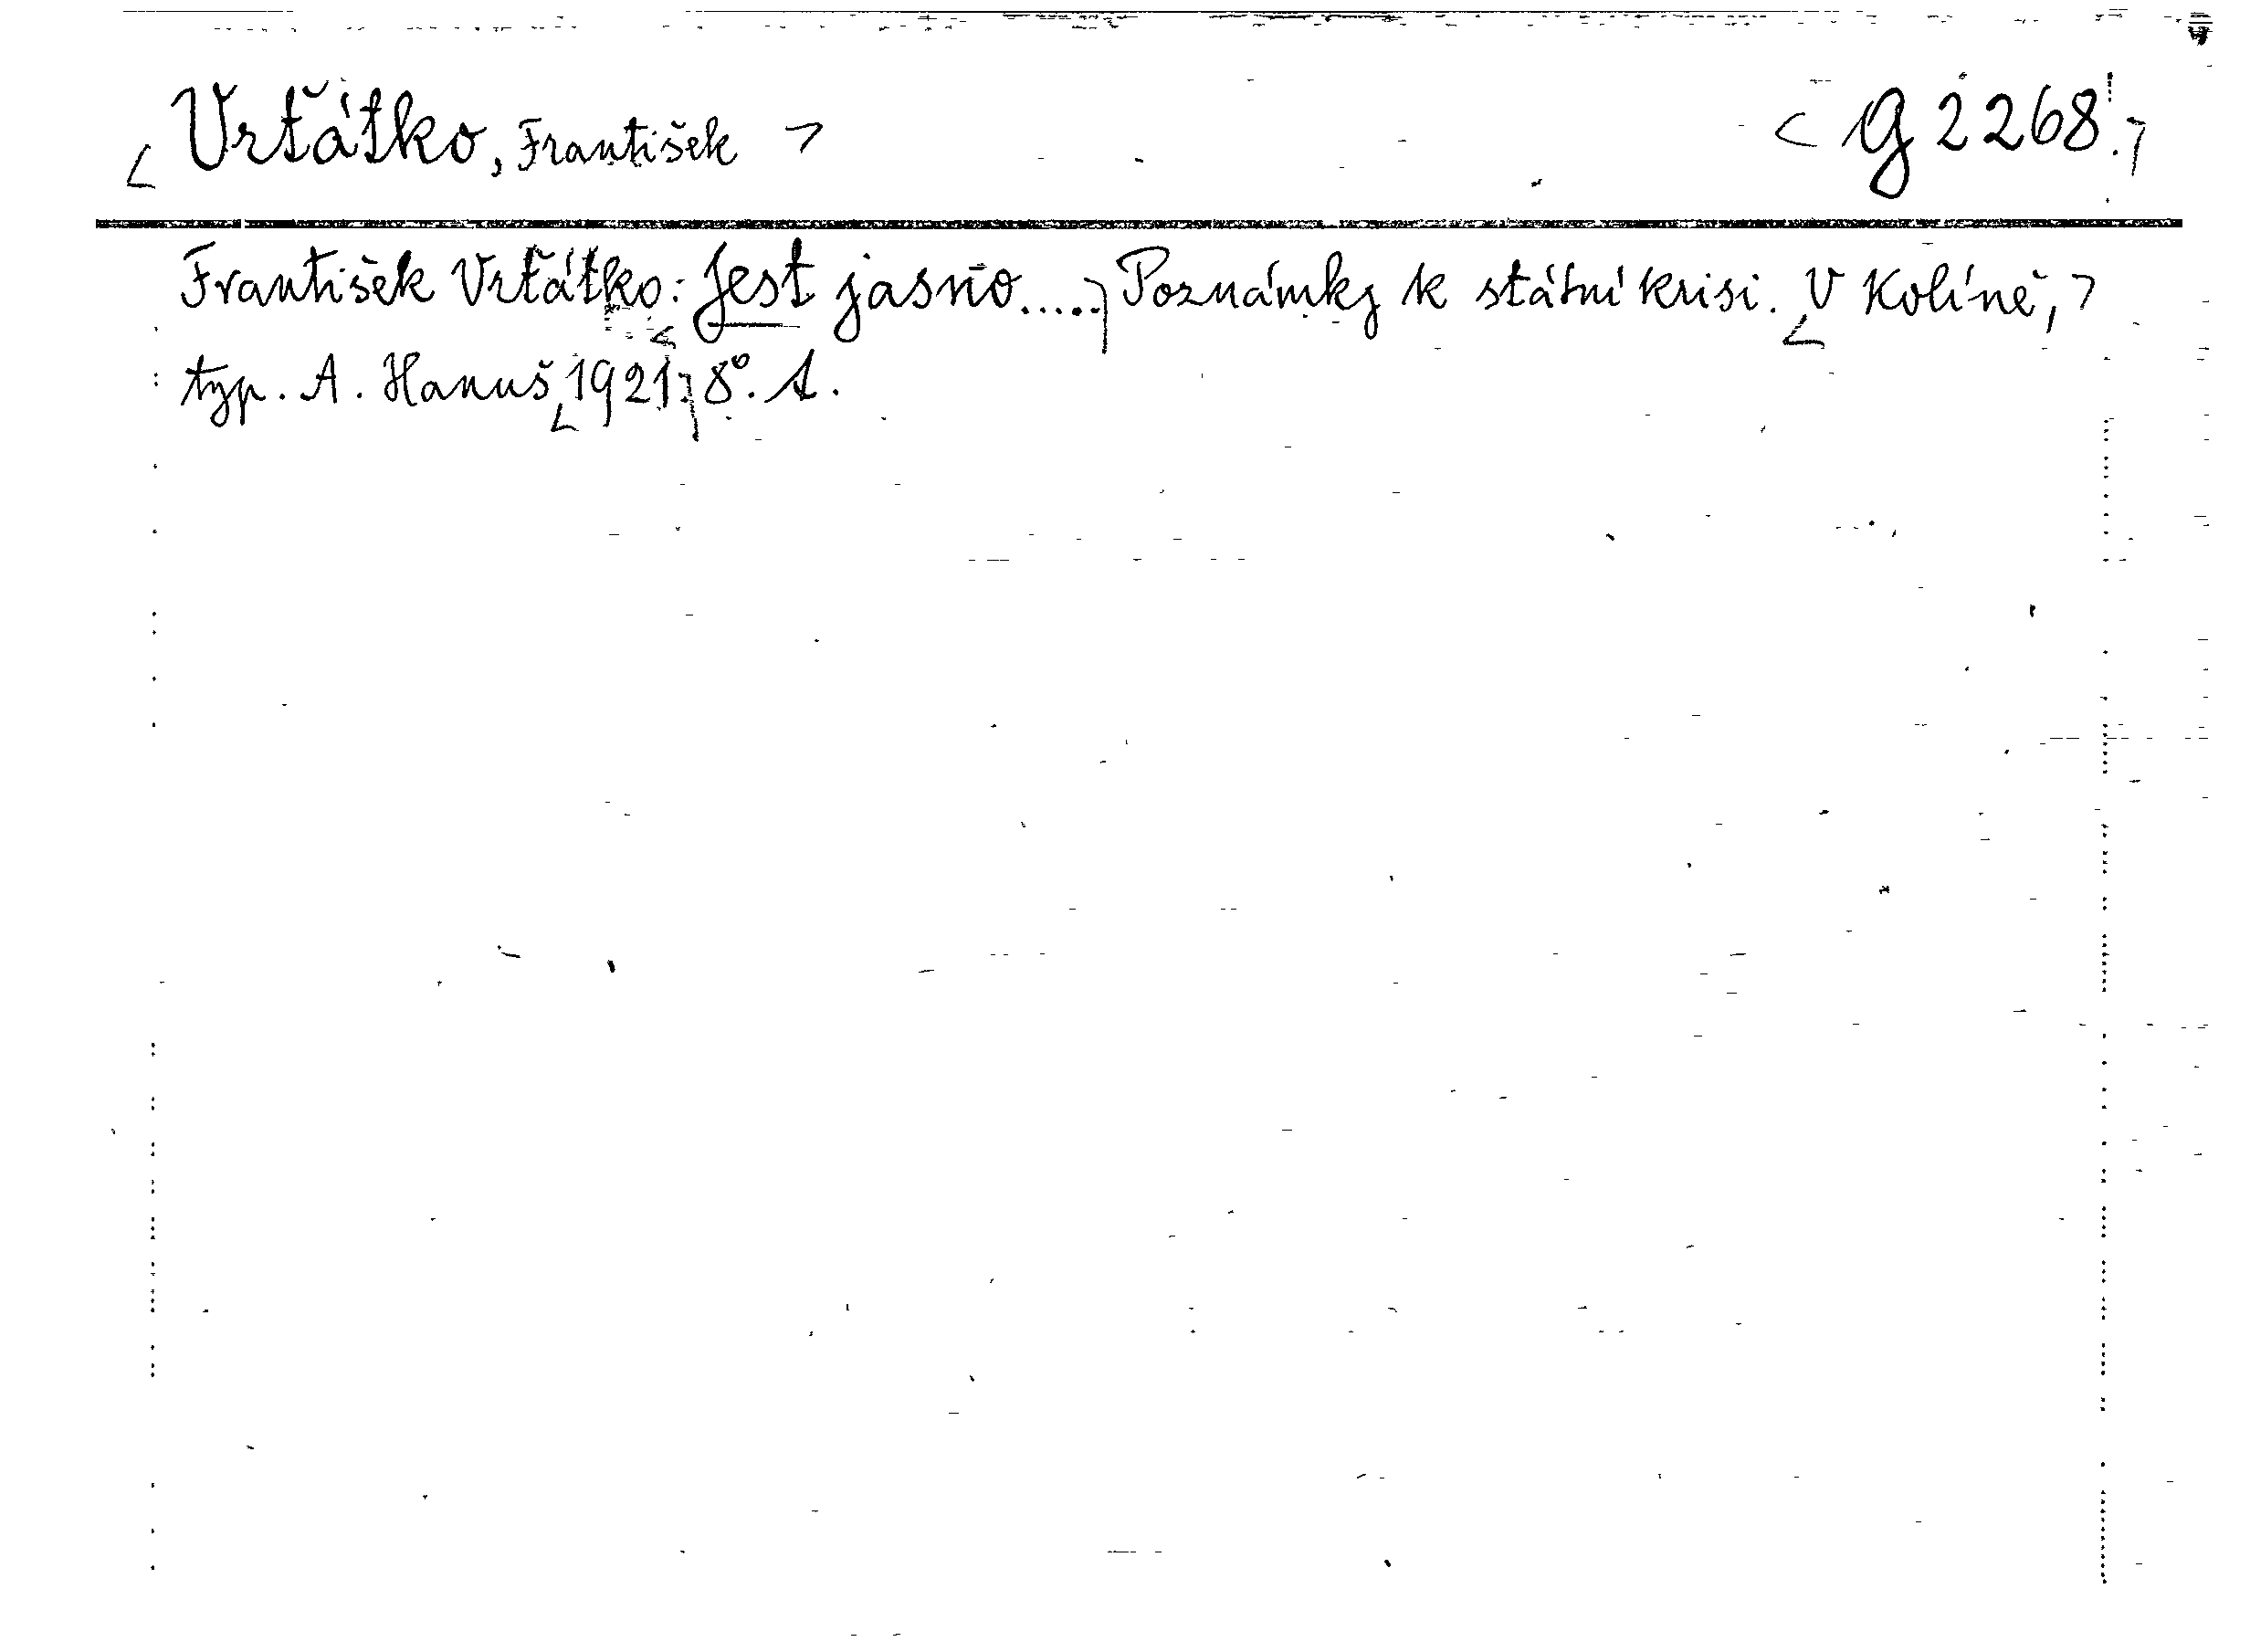 < Vrťátko, František > < G 2268. >
František Vrťátko: < Jest jasno..... > Poznámky k státní krisi. < V Kolíně, >
typ. A. Hanuš < 1921. > 8°. A.